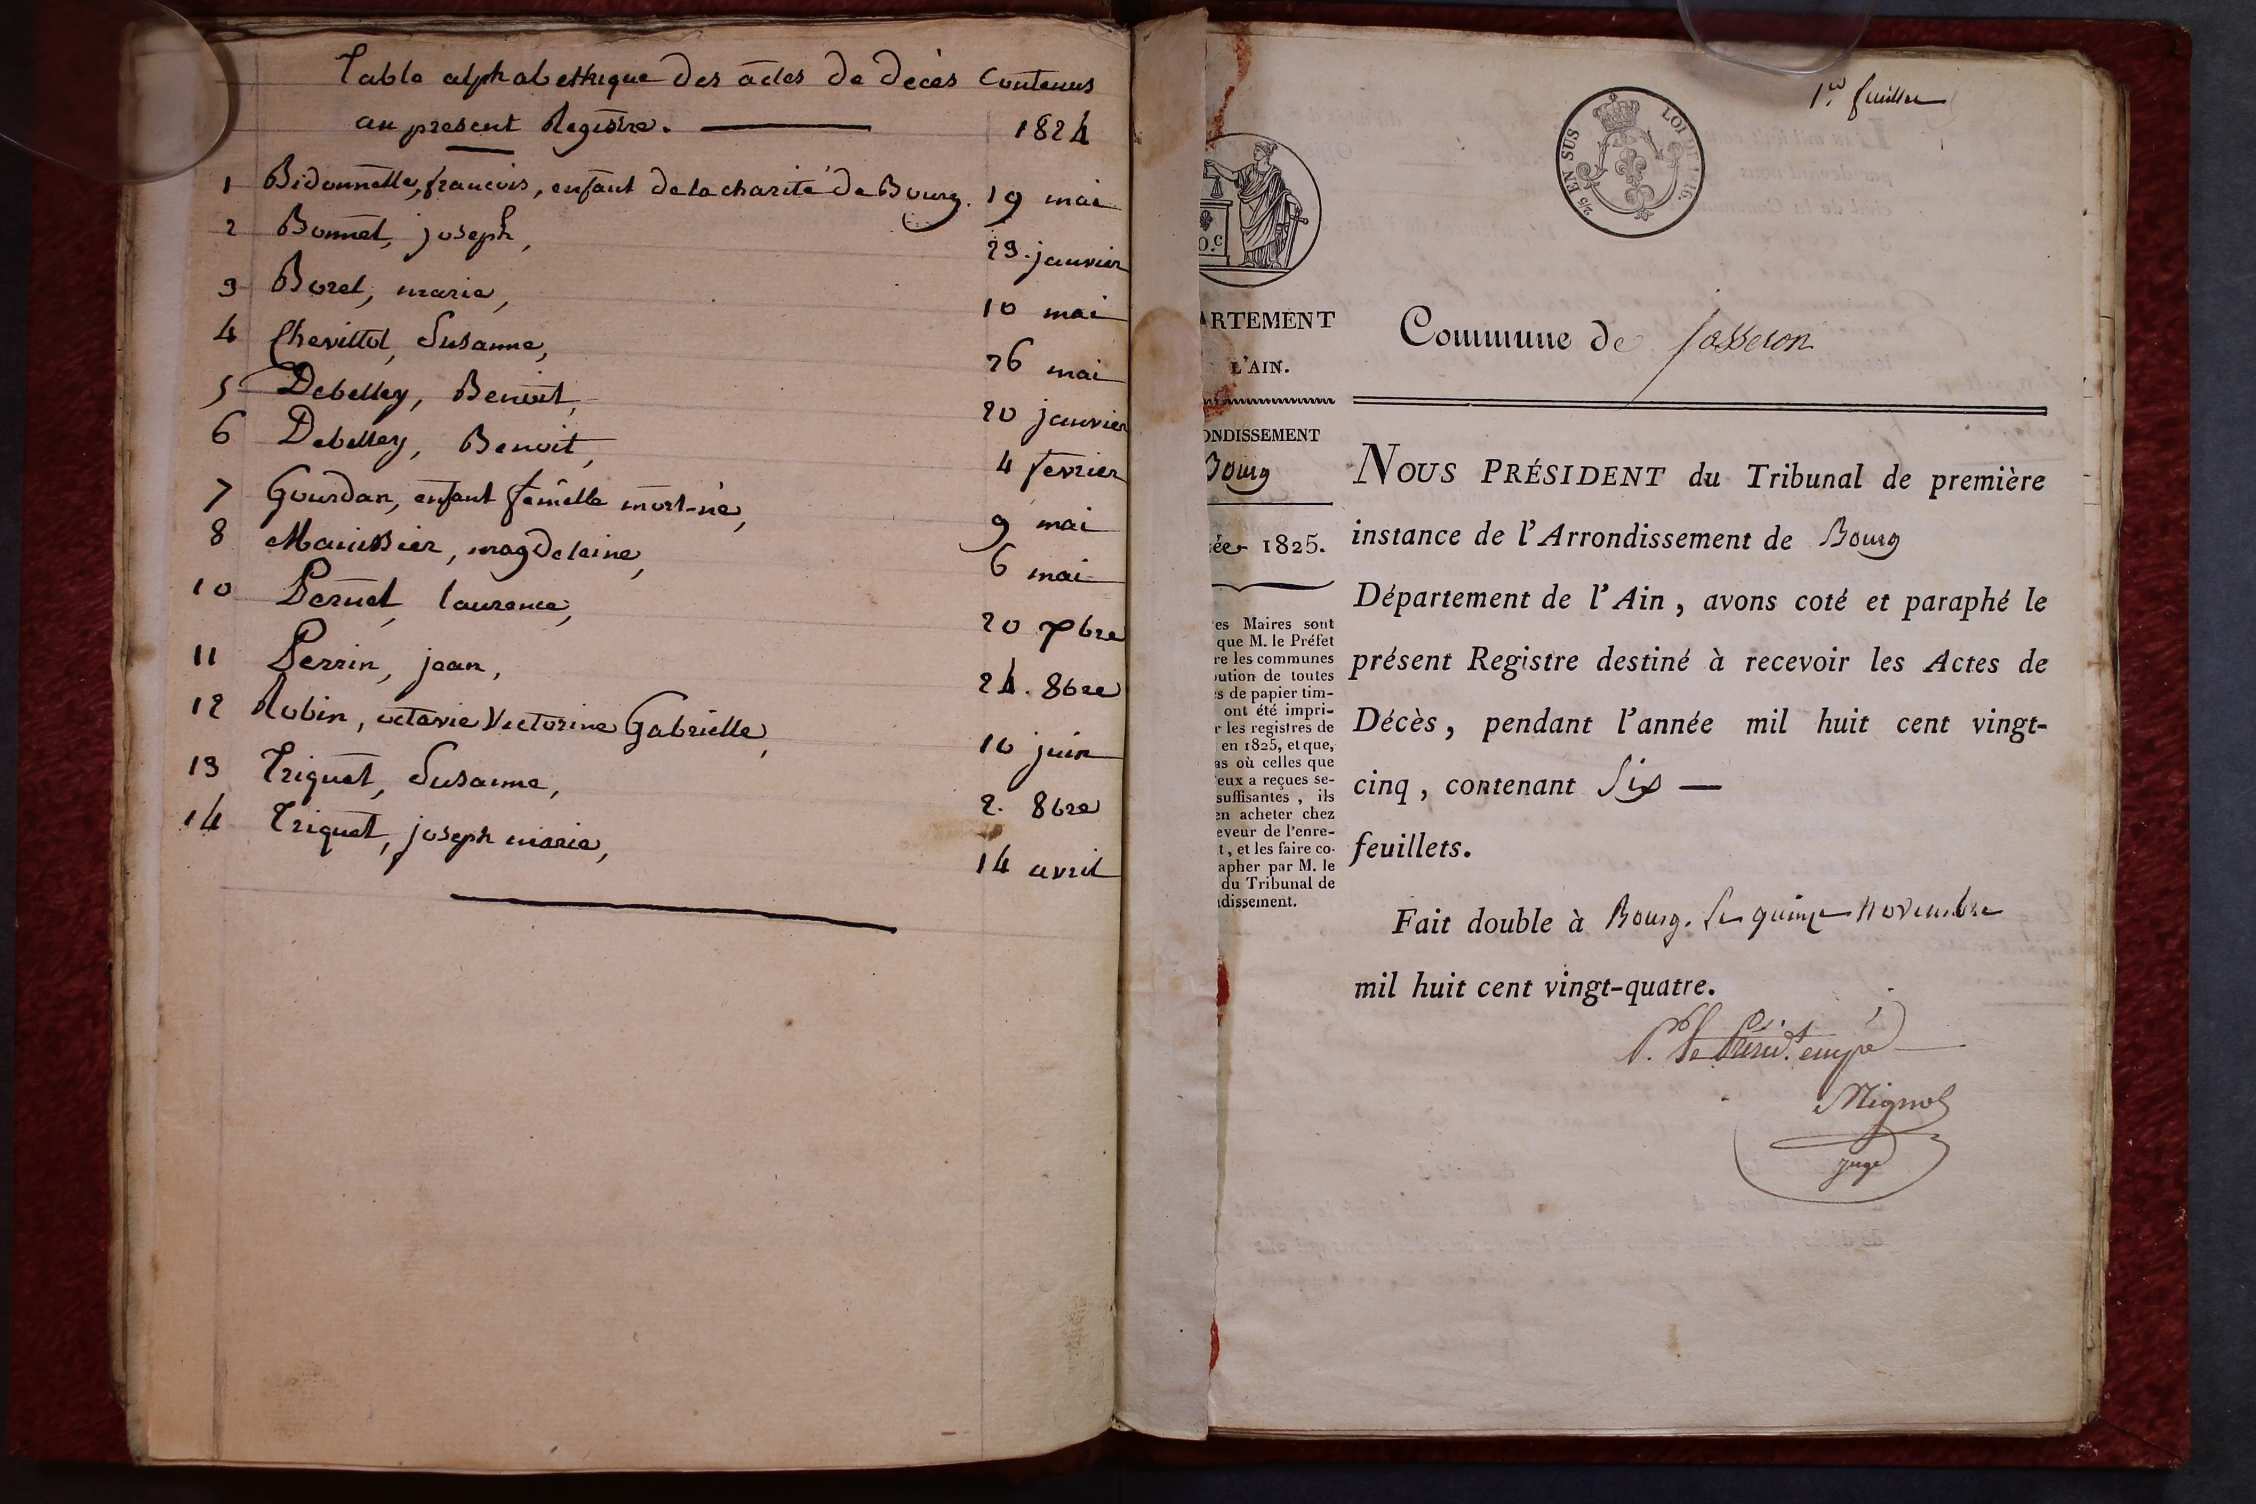 Table alphabethique des actes de decès Contenus
au present Registre. 1824
1 Bidonnelle, francois, enfant de la charité de Bourg. 19 mai
2 Bonnet, joseph, 23. janvier
3 Boret, marie, 10 mai
4 Chevillol, Susanne, 26 mai
5 Debelley, Benoit, 20 janvier
6 Debelley, Benoit, 4 fevrier
7 Gourdan, enfant femelle mort-né, 9 mai
8 magdelaine, 6 mai
10 Pernet, laurence, 20 7bre
11 Perrin, jean, 24. 8bre
12 Robin, octavie Victorine Gabrielle, 10 juin
13 Triquet, Susanne, 2. 8bre
14 Triquet, joseph marie, 14 avril
1er feuillet
2/5 EN SUS
LOI DE 1816.
O.C
ARTEMENT
L'AIN.
ONDISSEMENT
Bourg
ée 1825.
es Maires sont
que M. le Préfet
re les communes
ution de toutes
s de papier tim-
ont été impri-
r les registres de
en 1825, et que,
as où celles que
eux a reçues se-
suffisantes, ils
en acheter chez
eveur de l'enre-
t, et les faire co-
apher par M. le
du Tribunal de
dissement.
Commune de Josseron
NOUS PRÉSIDENT du Tribunal de première
instance de l'Arrondissement de Bourg
Département de l'Ain, avons coté et paraphé le
présent Registre destiné à recevoir les Actes de
Décès, pendant l'année mil huit cent vingt-
cinq, contenant Six —
feuillets.
Fait double à Bourg. Le quinze novembre
mil huit cent vingt-quatre.
P. le Présid.t empé
Mignot
juge